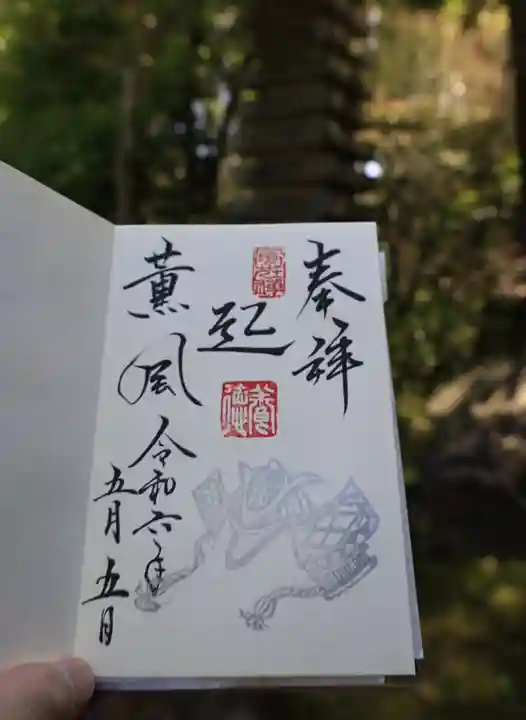 奉拝
起
薫風
令和六年
五月五日